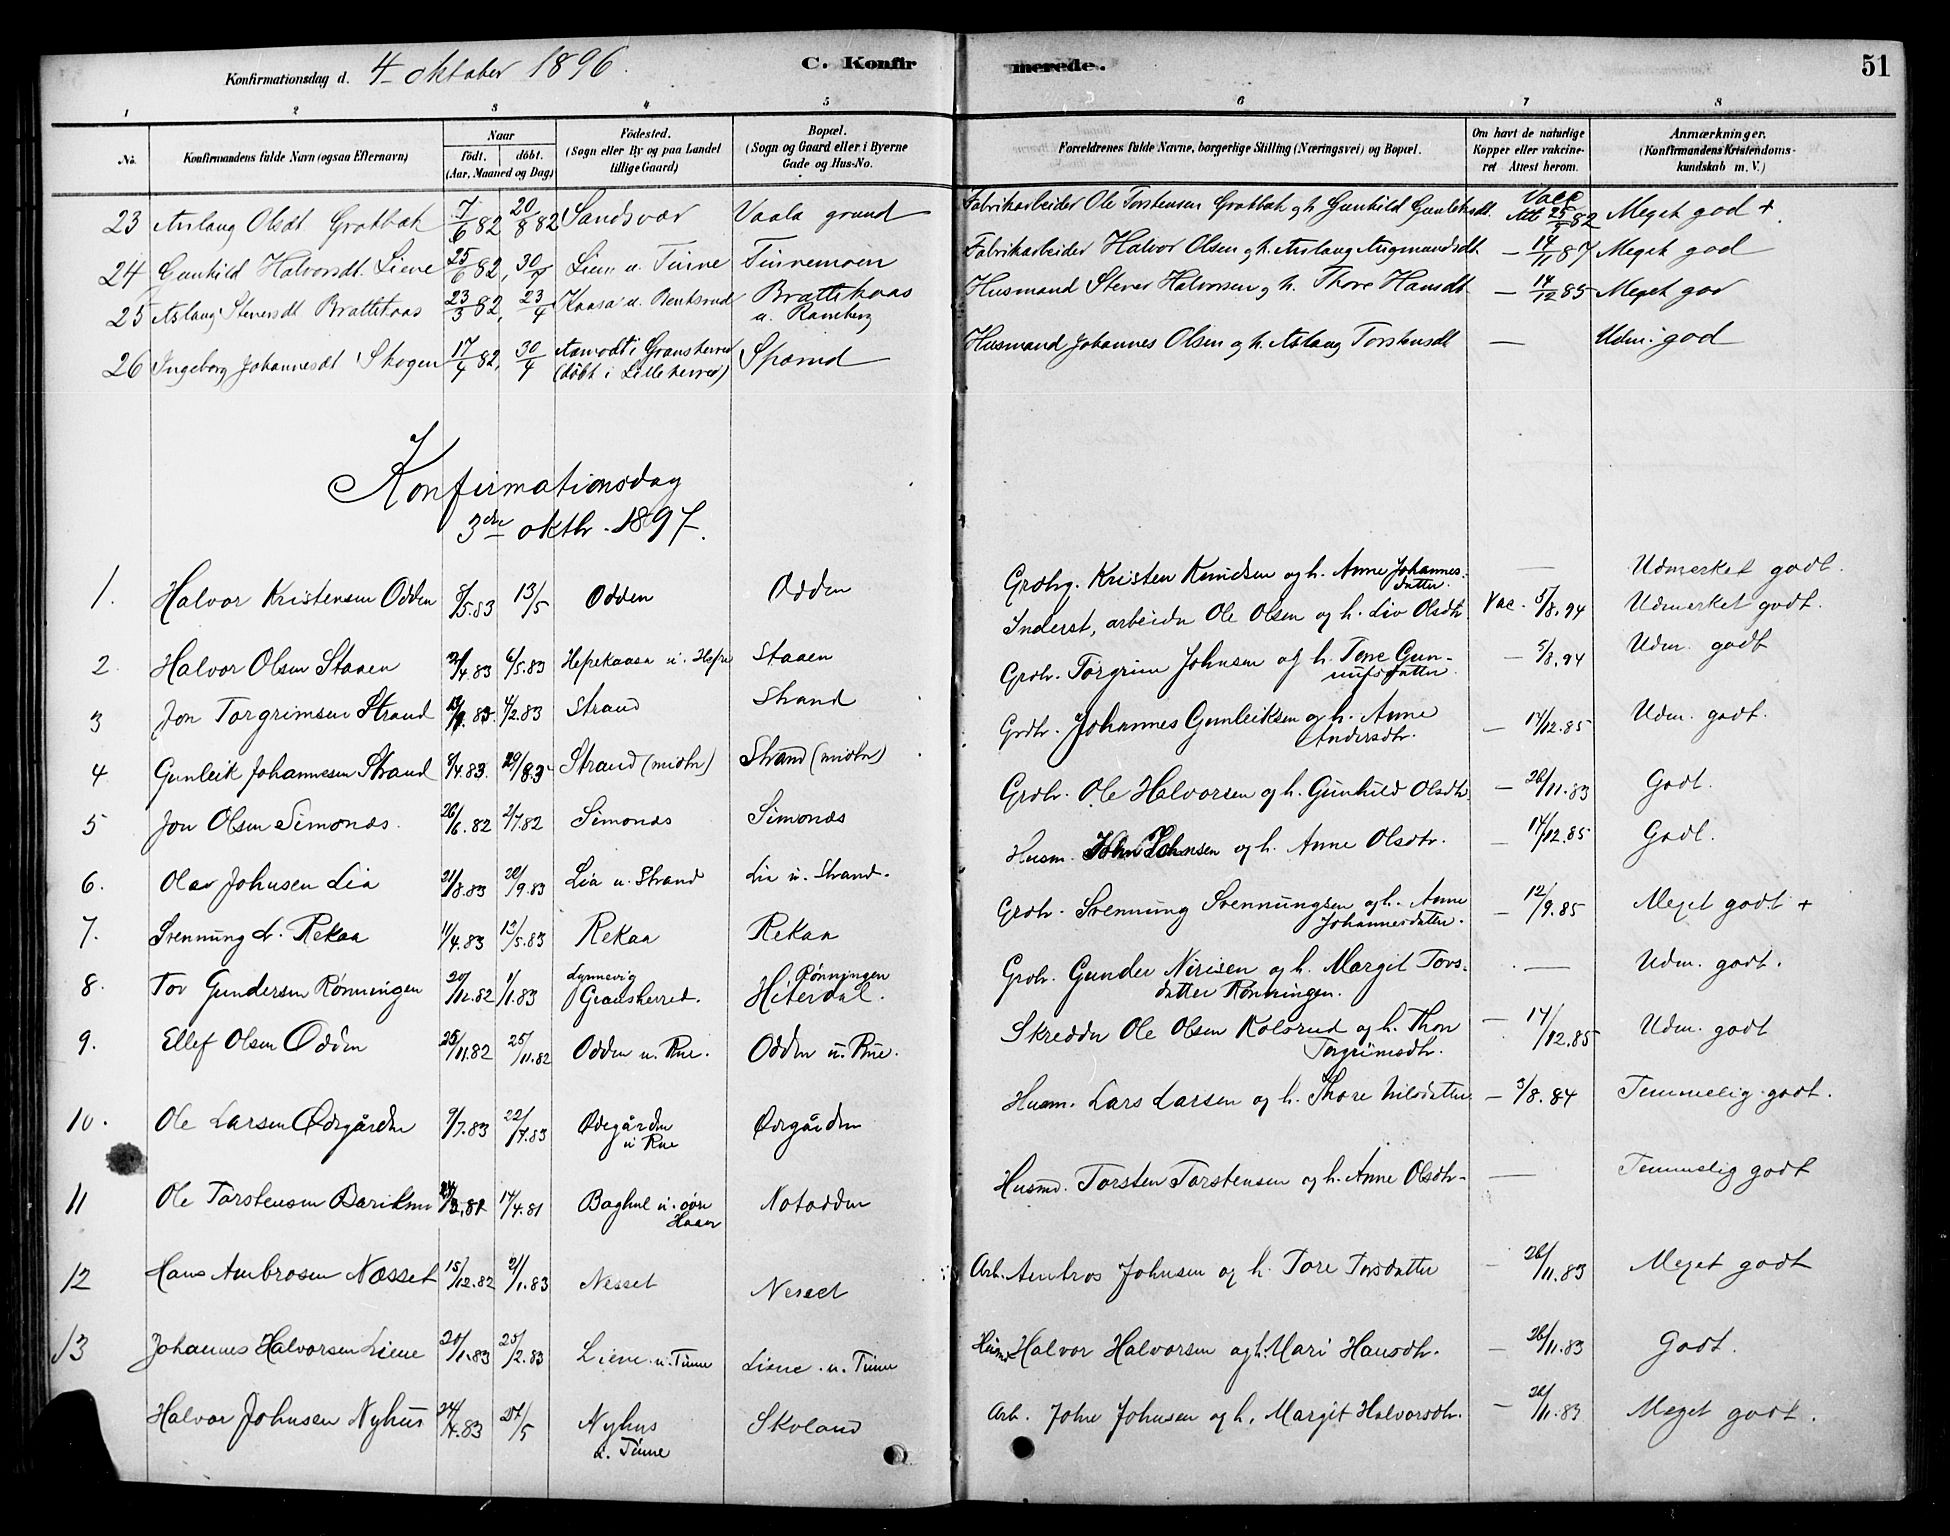 Konfirmationsdag d. 4 oktober 1896.
C. Konfirmerede.
51
1 2 3 4 5 6 7 8
No.
Konfirmandens fulde Navn (ogsaa Efternavn)
Naar
födt. döbt.
(Aar, Maaned og Dag)
Födested.
(Sogn eller By og paa Landet
tillige Gaard)
Bopæl.
(Sogn og Gaard eller i Byerne
Gade og Hus-No.
Forældrenes fulde Navne, borgerlige Stilling (Næringsvei) og Bopæl.
Om havt de naturlige
Kopper eller vakcine-
ret Attest herom.
Anmærkninger.
(Konfirmandens Kristendoms-
kundskab m. V.)
23 Aslaug Olsdt. Grotbæk 7/6 82 20/8 82 Sandsvær Vaala grund Fabrikarbeider Ole Torstensen Grotbæk og h. Gunhild Gunleiksdt. Vacc Att 25/5 82 Meget god +
24 Gunhild Halvorsdt. Liene 25/6 82, 30/7 Liene u. Tinne Tinnemoen Fabrikarbeider Halvor Olsen og h. Aslaug Augmundsdt. — 14/11 87 Meget god
25 Aslaug Steversdt Brattekaas 23/3 82, 23/4 Kaasa u. Bentsrud Brattekaas
u. Ramberg Husmand Stever Halvorsen og h. Thore Hansdt — 14/12 85 Meget god
26 Ingeborg Johannesdt Skogen 17/4 82, 30/4 Aamodt i Gransherred
(döbt i Lilleherred) Spærud Husmand Johannes Olsen og h. Aslaug Torstensdt — Udm. god
Konfirmationsdag
3die oktbr. 1897.
1. Halvor Kristensen Odden 8/5.83 13/5 Odden Odden Grdbr. Kristen Knudsen og h. Anne Johannes-
datter. — Udmerket godt.
2. Halvor Olsen Staaen /4.83 6/5.83 Hefrekaasa u. Hefre Staaen Inderst, arbeider Ole Olsen og h. Liv Olsdtr Vac. 5/8.94 Udmerket godt.
3 Jon Torgrimsen Strand 4/2.83 Strand Strand Grdbr. Torgrim Johnsen og h. Tone Gun-
nulfsdatter. — 5/8.94 Udm. godt
4. Gunleik Johannesen Strand 8/4.83. 29/ Strand (midtre) Strand (midtre) Grdbr. Johannes Gunleiksen og h. Anne
Andersdtr. — 14/12.85 Udm. godt.
5 Jon Olsen Simonds. 26/6.82 2/7.82 Simonds Simonds Grdbr. Ole Halvorsen og h. Gunhild Olsdtr. — 26/11.83 Godt.
6. Olav Johnsen Lia 21/8.83 20/9.83 Lia u. Strand Lia u. Strand. Husm. John Johnsen og h. Anne Olsdtr. — 14/12.85 Godt.
7. Svennung S. Rekaa 11/4.83 13/5.83 Rekaa Rekaa Grdbr. Svennung Svennungsen og h. Anne
Johannesdatter. — 12/9.85 Meget godt +
8. Tov Gundersen Rønningen 20/11.82 1/1.83 Lynnevig
Gransherred. Rønningen
Hiterdal. Grdbr. Gunder Nirisen og h. Margit Tovs-
datter Rønningen. — Udm. godt.
9. Ellef Olsen Odden 25/11.82 25/11.82 Odden u. Rue. Odden u. Rue. Skredder Ole Olsen Kolsrud og h. Thon
Torgrimsdtr. — 14/12.85 Udm. godt
10. Ole Larsen Ødegården 9/7.83 22/7.83 Ødegården
u Rue Ødegården Husm. Lars Larsen og h. Thore Nilsdatter — 3/8.84 Temmelig godt.
11 Ole Torstensen 17/4.81 u. søre
Haaen Notodden Husmd. Torsten Torstensen og h. Anne Olsdtr. — Temmelig godt
12 Hans Ambrosen Næsset 15/12.82 21/1.83 Nesset Nesset Arb. Ambros Johnsen og h. Tore Torsdatter — 26/11.83 Meget godt
13 Johannes Halvorsen Liene 20/1.83 25/2.83 Liene u. Tinne Liene. u. Tinne Husm. Halvor Halvorsen og h. Mari Hansdtr. — 26/11.83 Godt.
Halvor Johnsen Nyhus 24/4.83 27/5 Nyhus
u. Tinne Skoland Arb. John Johnsen og h. Margit Halvorsdtr. — 26/11.83 Meget godt.